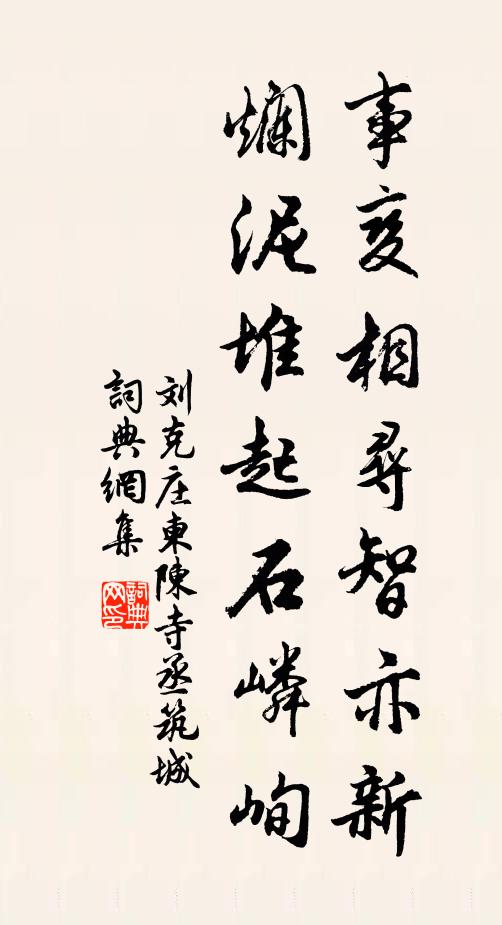 事变相尋智亦新
爛泥堆起石嶙峋
刘克庄東陳寺丞筑城
詞典網集
詞典网印